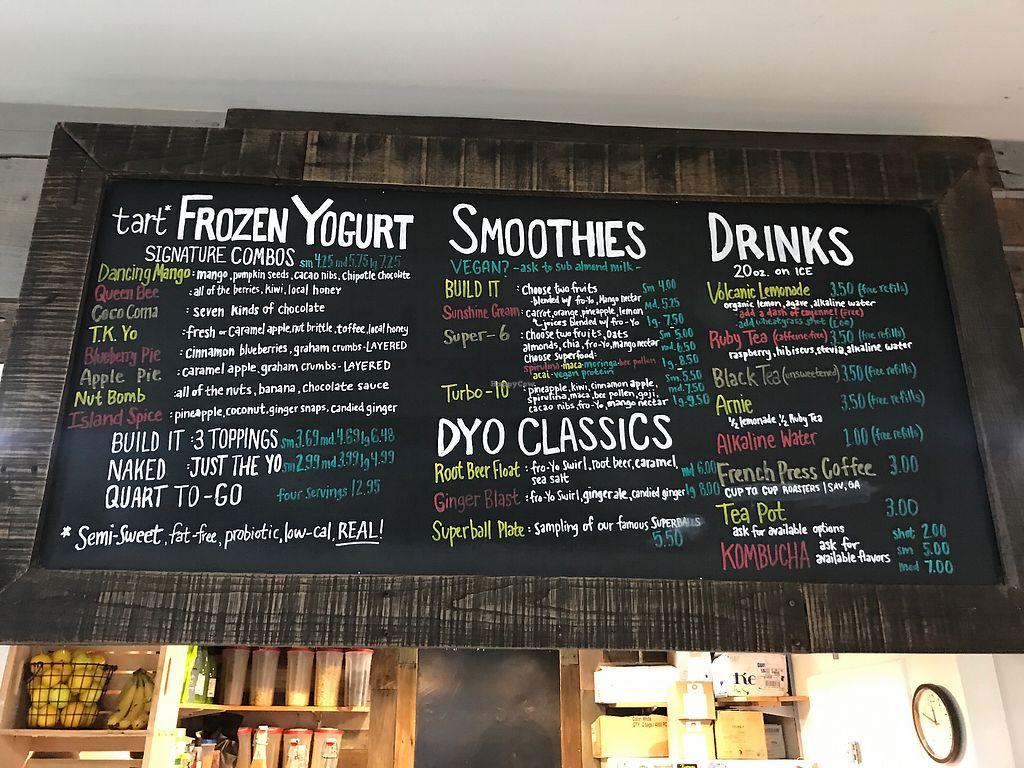 tart* FROZEN YOGURT
SIGNATURE COMBOS sm 4.25 md 5.75 lg 7.25
Dancing Mango: mango, pumpkin seeds, cacao nibs, chipotle chocolate
Queen Bee : all of the berries, kiwi, local honey
Coco Coma : seven kinds of chocolate
T.K. Yo : fresh or caramel apple, nut brittle, toffee, local honey
Blueberry Pie : cinnamon blueberries, graham crumbs-LAYERED
Apple Pie : caramel apple, graham crumbs-LAYERED
Nut Bomb : all of the nuts, banana, chocolate sauce
Island Spice : pineapple, coconut, ginger snaps, candied ginger
BUILD IT : 3 TOPPINGS sm 3.69 md 4.69 lg 6.48
NAKED : JUST THE YO sm 2.99 md 3.99 lg 4.99
QUART TO-GO four servings 12.95
* Semi-Sweet, fat-free, probiotic, low-cal, REAL!
SMOOTHIES
VEGAN? -ask to sub almond milk-
BUILD IT : Choose two fruits sm 4.00
-blended w/ fro-yo, Mango nectar md. 5.25
Sunshine Cream: carrot, orange, pineapple, lemon
juices blended w/ fro-Yo lg. 7.50
Super-6 : Choose two fruits, oats, sm 5.00
almonds, chia, fro-yo, mango nectar md. 6.50
Choose Superfood: lg. 8.50
spirulina-maca-moringa-bee pollen
acai-vegan protein
Turbo-10 : pineapple, kiwi, cinnamon apple, sm. 5.50
spirulina, maca, bee pollen, goji, md. 7.50
cacao nibs, fro-yo, mango nectar lg-9.50
DYO CLASSICS
Root Beer Float : fro-Yo Swirl, root beer, caramel, md 6.00
sea salt
Ginger Blast : fro-Yo Swirl, ginger ale, candied ginger lg 8.00
Superball Plate : sampling of our famous SUPERBALLS
5.50
DRINKS
20 oz. on ICE
Volcanic Lemonade 3.50 (free refills)
organic lemon, agave, alkaline water
-add a dash of cayenne! (free)
-add wheatgrass shot
Ruby Tea (caffeine-free) 3.50 (free refills)
raspberry, hibiscus, stevia, alkaline water
Black Tea (unsweetened) 3.50 (free refills)
Arnie 3.50 (free refills)
½ lemonade, ½ Ruby Tea
Alkaline Water 1.00 (free refills)
French Press Coffee 3.00
CUP TO CUP ROASTERS | SAV, GA
Tea Pot 3.00
ask for available options
KOMBUCHA ask for available flavors
shot 2.00
sm 5.00
med 7.00
HappyCow